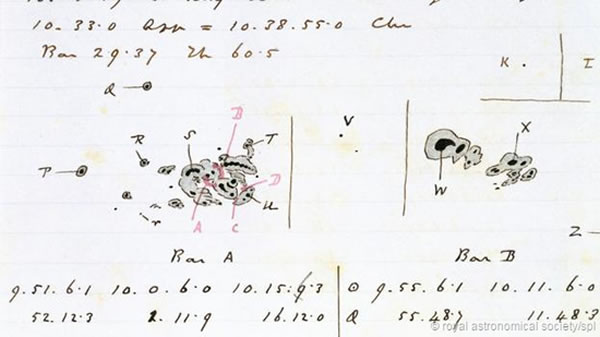 10.33.0 App = 10.38.55.0 Clu
Bar 29.37 Th 60.5
K I
Q
B
V
R S T X
P
D
W
A C U
Z
Bar A Bar B
9.51.6.1 10.0.6.0 10.15.9.3 ⊙ 9.55.6.1 10.11.6.0
52.12.3 2.11.9 16.12.0 Q 55.48.7 11.48.3
© royal astronomical society/spl